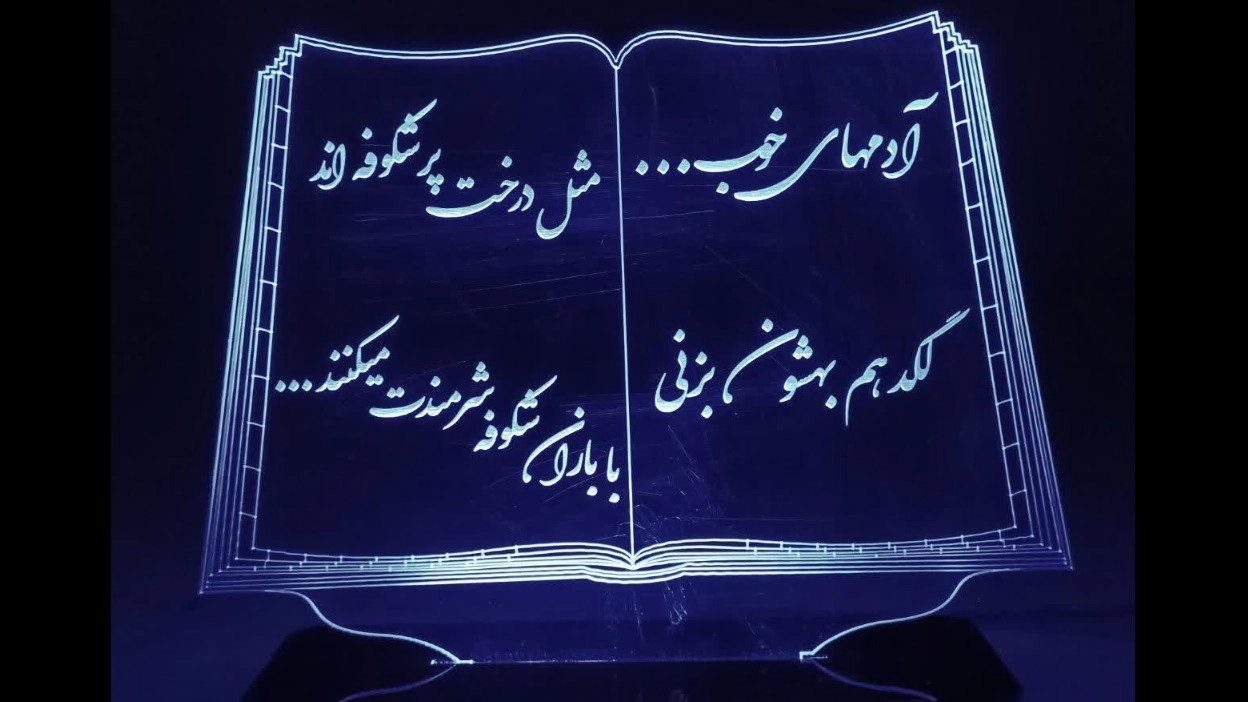 آدمهای خوب...
مثل درخت پر شکوفه اند
لگد هم بهشون بزنی
با باران شکوفه شرمندت میکنند...